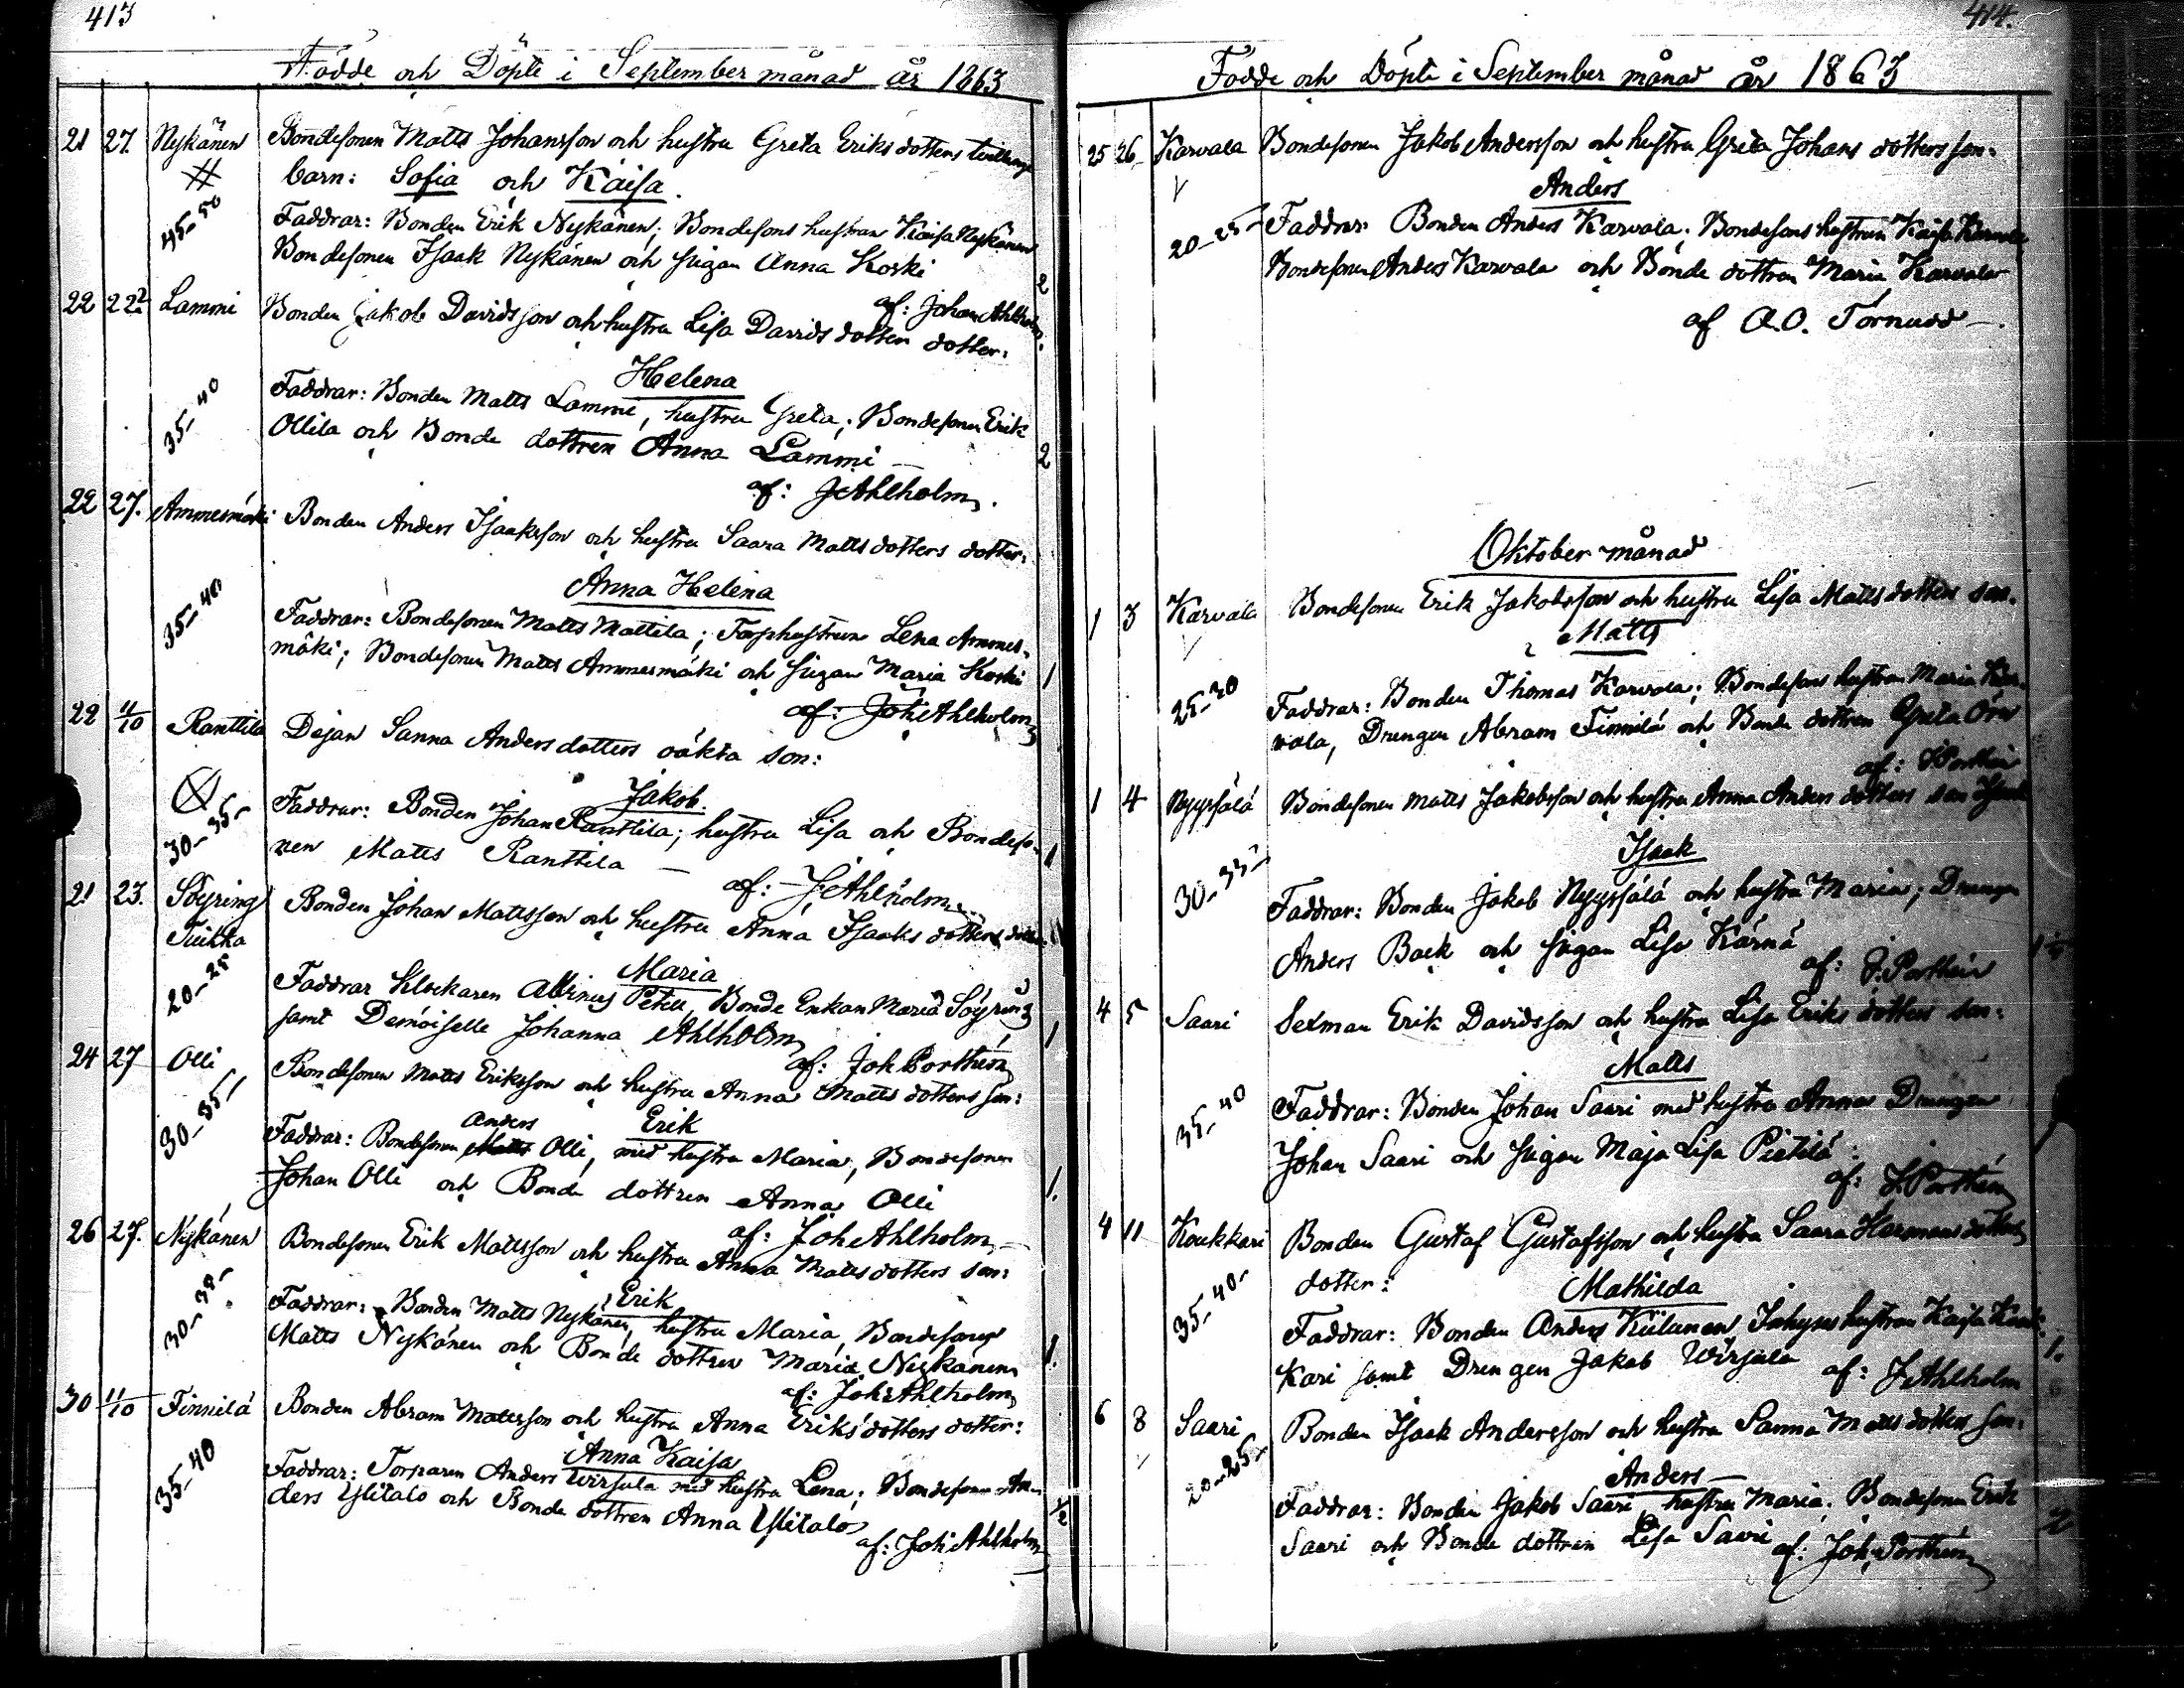 413
Födde och Döpte i September månad år 1863
21 27. Nykänen Bondesonen Matts Johansson och hustru Greta Eriks dotters
barn: Sofia och Kaisa.
45-50 Faddrar: Bonden Erik Nykänen; Bondesons hustrun Kaisa Nykänen
Bondesonen Isaak Nykänen och pigan Anna Koski 2
af: Johan Ahlholm.
22 22 Lammi Bonden Jakob Davidsson och hustru Lisa Davids dotters dotter:
Helena
35-40 Faddrar: Bonden Matts Lammi, hustru Greta; Bondesonen Erik
Ollila och Bonde dottren Anna Lammi 2
af: J Ahlholm.
22 27. Ammesmäki Bonden Anders Isaaksson och hustru Saara Matts dotters dotter:
Anna Helena
35-40 Faddrar: Bondesonen Matts Mattila; Torphustrun Lena Ammes-
mäki; Bondesonen Matts Ammesmäki och pigan Maria Koski 1
af: Joh Ahlholm
22 11/10 Ranttila Dejan Sanna Anders dotters oäkta son:
Jakob.
30-35 Faddrar: Bonden Johan Ranttila; hustru Lisa och Bondeso-
nen Matts Ranttila 1
af: J Ahlholm.
21 23. Söyring Bonden Johan Mattsson och hustru Anna Isaaks dotters dotter:
Tuikka
Maria
20-25 Faddrar Klockaren Albinus Petell, Bonde Enkan Maria Söyring
samt Demoiselle Johanna Ahlholm 1
af: Joh Porthén
24 27 Olli Bondesonen Matts Eriksson och hustru Anna Matts dotters son:
Erik
30-35 Faddrar: Bondesonen Matts Anders Olli, med hustru Maria, Bondesonen
Johan Olli och Bonde dottren Anna Olli 1.
af: Joh Ahlholm
26 27. Nykänen Bondesonen Erik Mattsson och hustru Anna Matts dotters son:
Erik
Faddrar: Bonden Matts Nykänen, hustru Maria, Bondesonen
Matts Nykänen och Bonde dottren Maria Nykänen 1.
af: Joh Ahlholm
30 11/10 Finnilä Bonden Abram Mattsson och hustru Anna Eriks dotters dotter:
Anna Kaisa
35-40 Faddrar: Torparen Anders Wirsula med hustru Lena; Bondesonen An-
ders Ylitalo och Bonde dottren Anna Ylitalo 1/2
af: Joh Ahlholm
414.
Födde och Döpte i September månad år 1863
25 26 Karvala Bondesonen Jakob Andersson och hustru Greta Johans dotters son:
Anders
20-25 Faddrar Bonden Anders Karvala; Bondesons hustrun Kaisa Karvala
Bondesonen Anders Karvala och Bonde dottren Maria Karvala
af A.O. Törnudd
Oktober månad
1 3 Karvala Bondesonen Erik Jakobsson och hustru Lisa Matts dotters son.
Matts
25-30 Faddrar: Bonden Thomas Karvala; Bondesons hustrun Maria Kar-
vala, Drengen Abram Finnilä och Bonde dottren Greta
af: J Porthén
1 4 Nyyssälä Bondesonen Matts Jakobsson och hustru Anna Anders dotters son Isaak
Isaak
Faddrar: Bonden Jakob Nyyssälä och hustru Maria; Drengen
Anders Back och pigan Lisa Kärnä
af: J. Porthén
4 5 Saari Sexman Erik Davidsson och hustru Lisa Eriks dotters son:
Matts
35-40 Faddrar: Bonden Johan Saari med hustru Anna Drengen
Johan Saari och pigan Maja Lisa Pietilä
af: J. Porthén
4 11 Koukkari Bonden Gustaf Gustafsson och hustru Saara Hermans dotters
dotter: Mathilda
35-40 Faddrar: Bonden Anders Kiilunen, hustrun Kaisa Kouk-
kari samt Drengen Jakob Wirsula 1.
af: J Ahlholm
6 8 Saari Bonden Isaak Andersson och hustru Sanna Matts dotters son:
Anders
20-25 Faddrar: Bonden Jakob Saari, hustru Maria; Bondesonen Erik
Saari och Bonde dottren Lisa Saari 2
af: Joh. Porthén